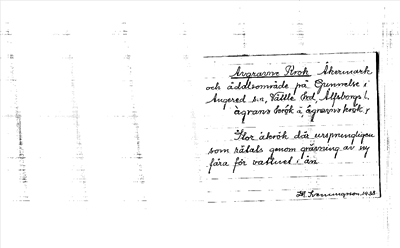 Avgravne Krok Åkermark
och ådalsområde på Gunnelse i
Angered s:n, Vättle hd, Älfsborgs l.
ågrans krók å, ågravns krok,
Stor åkrók där ursprungligen
som rätats genom grävning av ny
fåra för vattnet i ån
1938